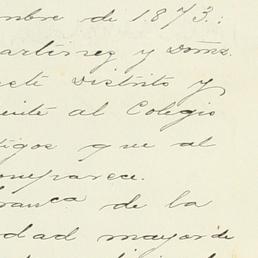 mbre de 1873.:
artinez y Doms.
este Distrito y
ente al Colegio
tigos que al
comparece.
ranca de la
edad mayor de